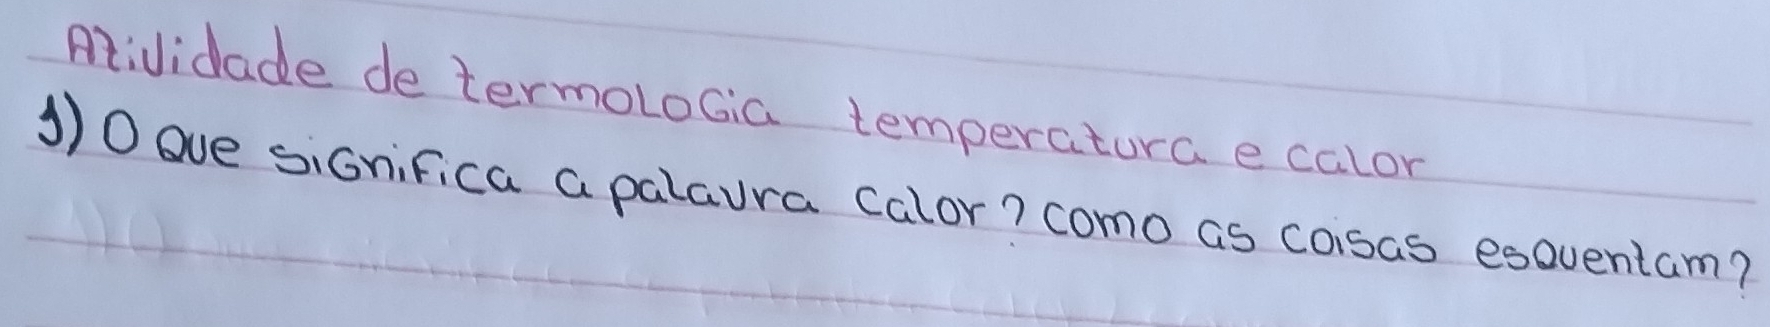 Atividade de termologia temperatura e calor
1) O que significa a palavra calor? como as coisas esquentam?